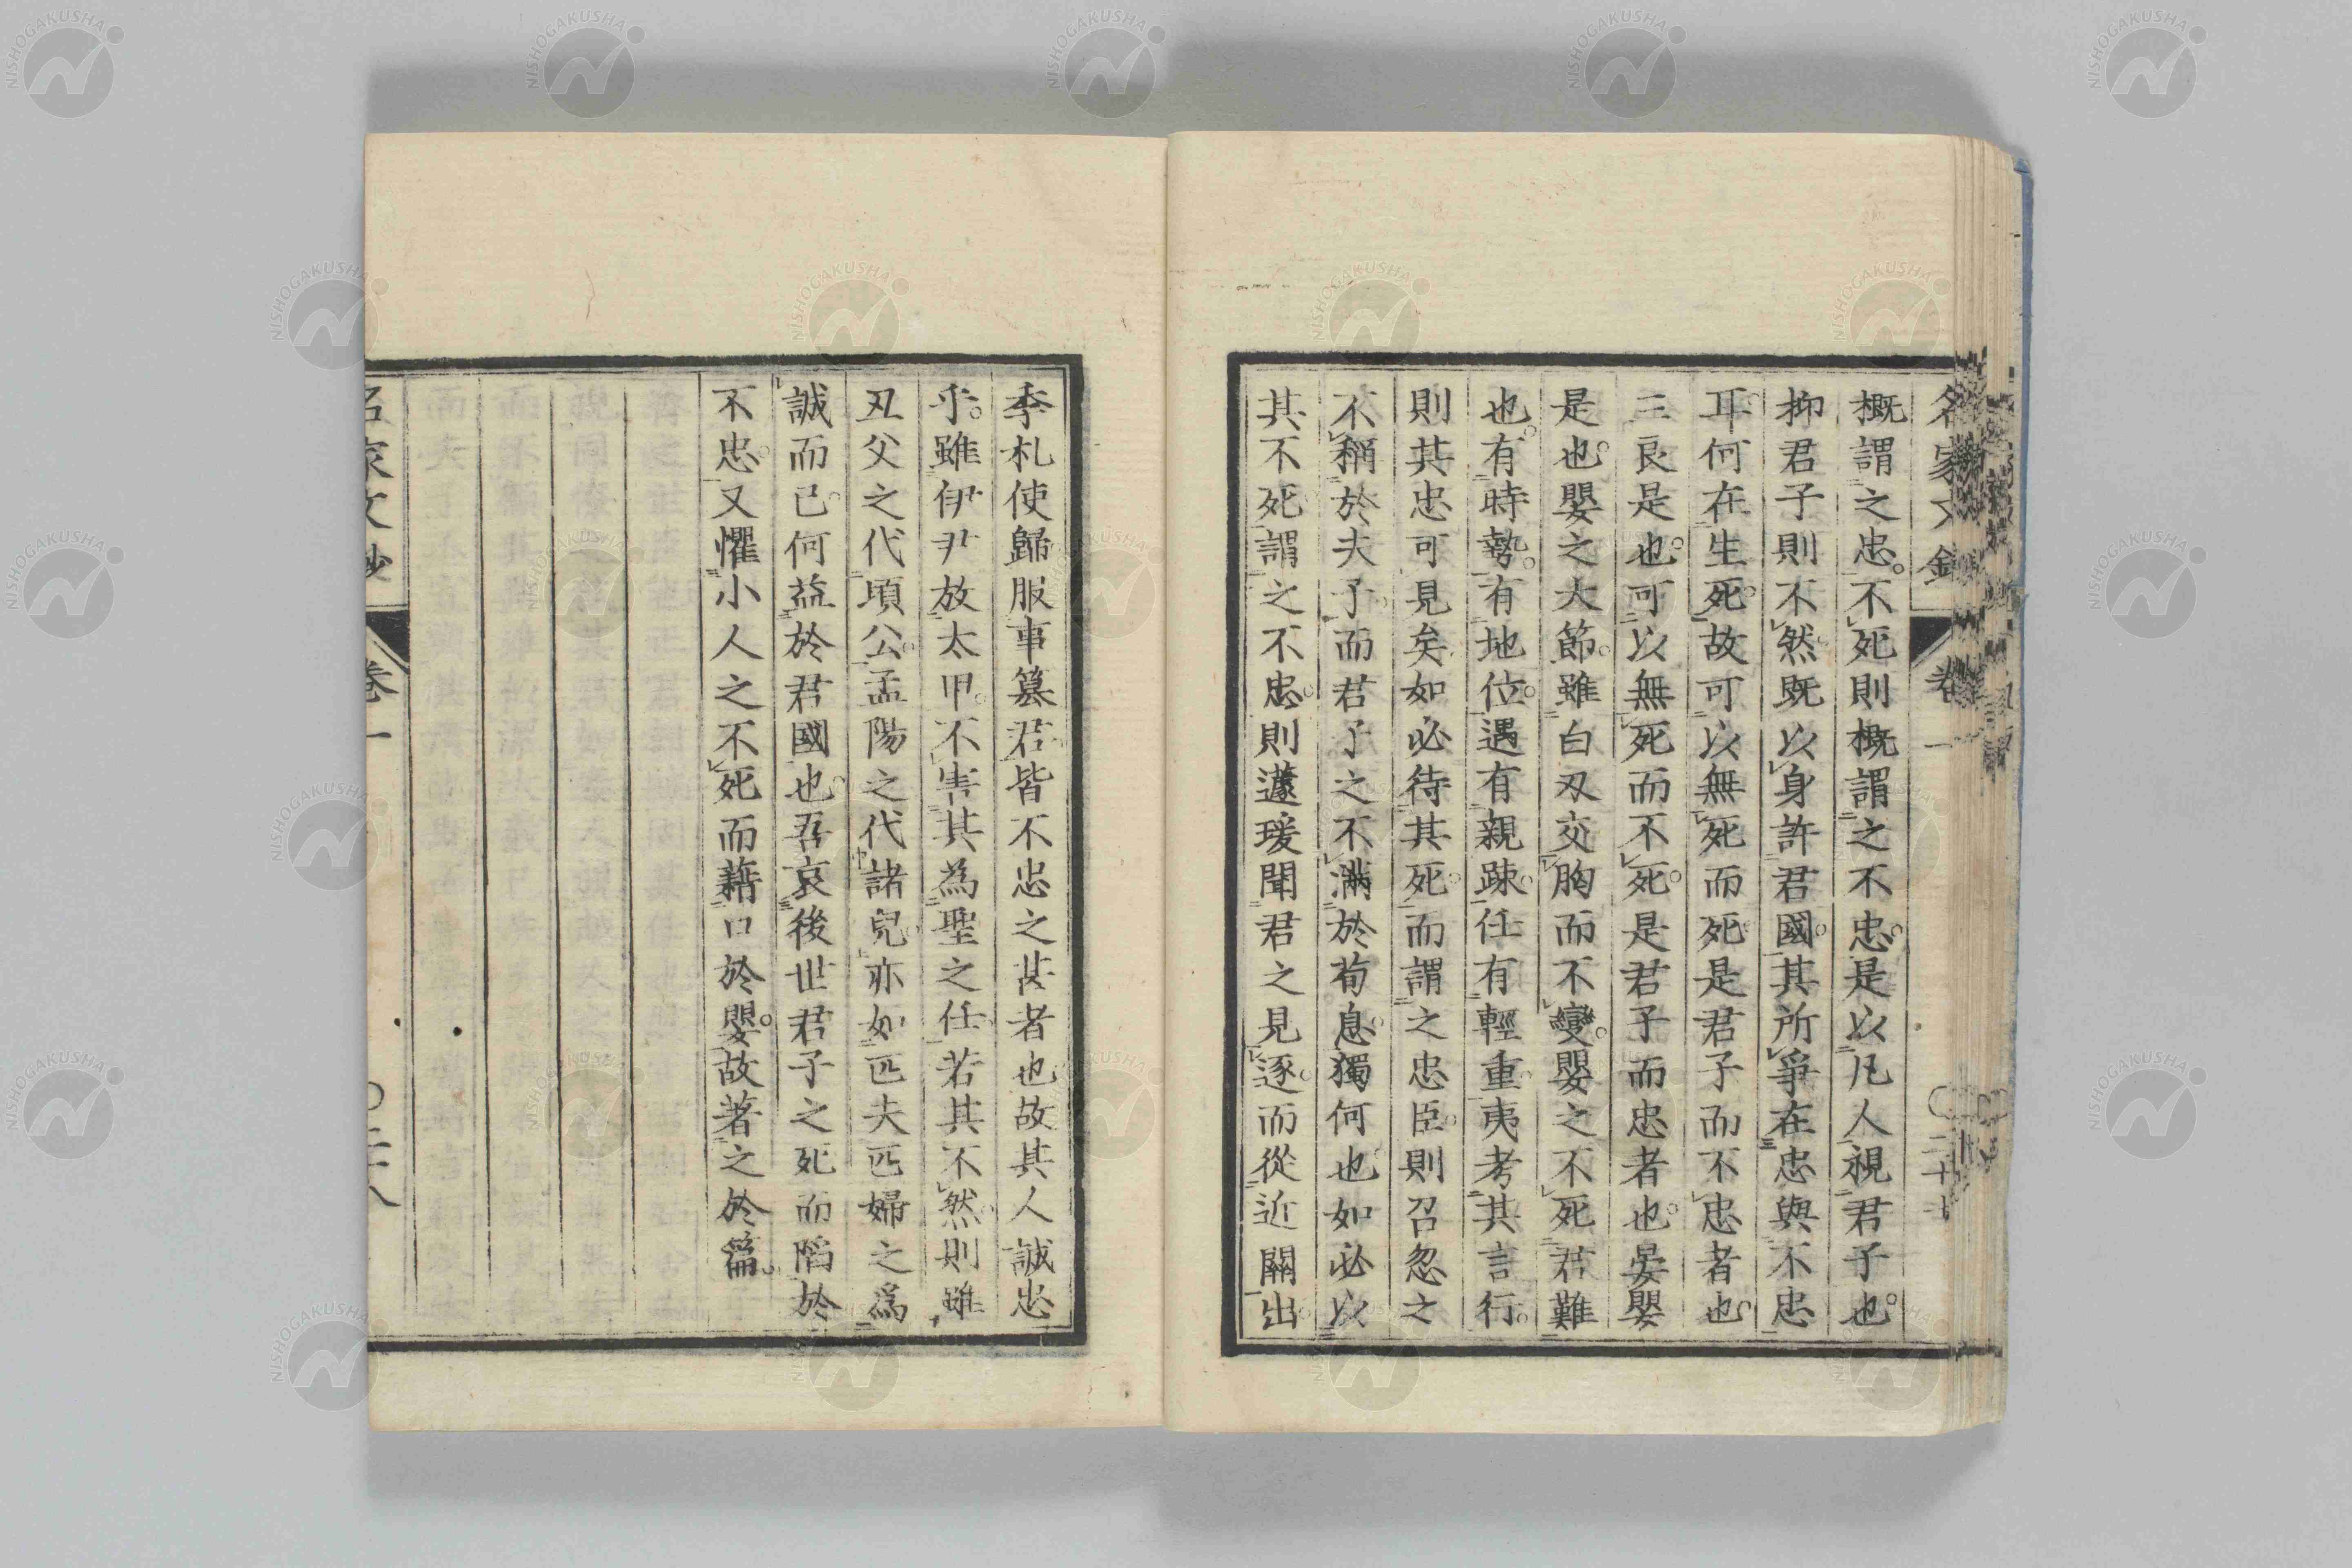 概謂之忠。不死則概謂之不忠。是以凡人視君子也。
抑君子則不然。既以身許君國。其所爭在忠與不忠
耳。何在生死。故可以無死而死。是君子而不忠者也。
三良是也。可以無死而不死。是君子而忠者也。晏嬰
是也。嬰之大節。雖白刃交胸而不變。嬰之不死君難
也。有時勢。有地位。遇有親疎。任有輕重。夷考其言行。
則其忠可見矣。如必待其死。而謂之忠臣。則召忽之
不稱於夫子。而君子之不滿於荀息。獨何也。如必以
其不死。謂之不忠。則蘧瑗聞君之見逐。而從近關出。
名家文鈔 卷一
季札使歸服事篡君。皆不忠之甚者也。故其人誠忠
乎。雖伊尹放太甲。不害其為聖之任。若其不然。則雖
丑父之代頃公。孟陽之代諸兒。亦如匹夫匹婦之爲
誠而已。何益於君國也。吾哀後世君子之死而陷於
不忠。又懼小人之不死而藉口於嬰。故著之於篇。
名家文鈔 卷一 〇二十八
NISHOGAKUSHA